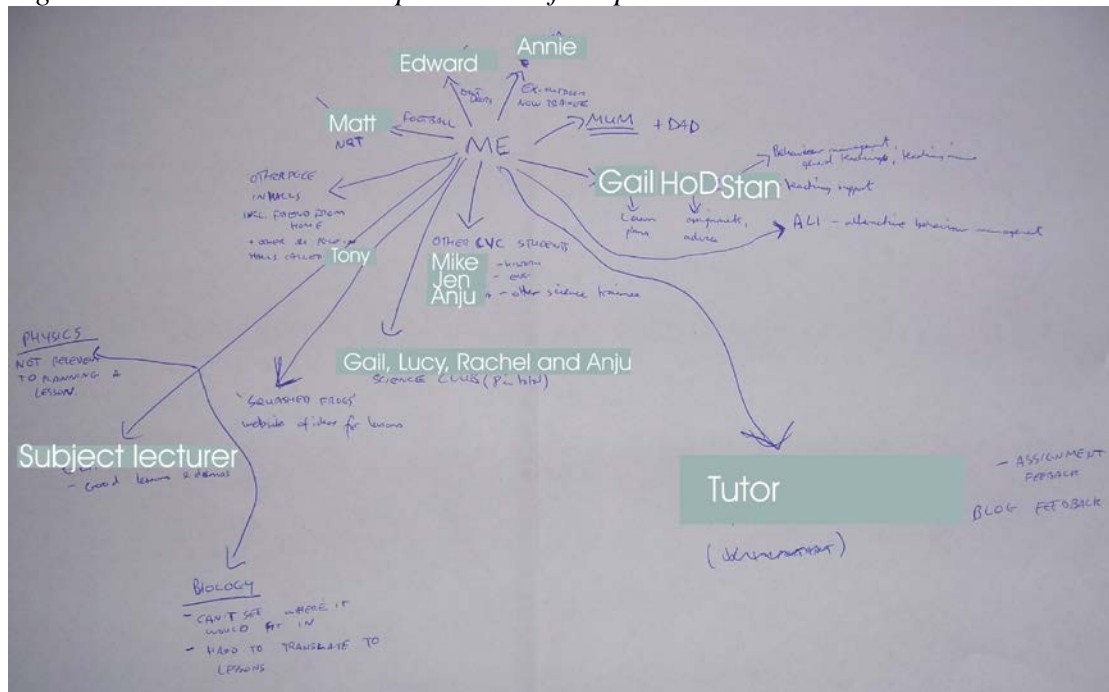 Edward
Annie
Matt
NQT
FOOTBALL
NOW TRAINEE
ME
MUM + DAD
Behaviour management,
Gail HoD Stan
teaching support
Lesson
plans
assignments,
advice
ALI - alternative behaviour management
OTHER PGCE
IN HALLS
INCL. FROM
HOME
HALLS CALLED Tony
OTHER CVC STUDENTS
Mike
Jen
Anju - other science trainee
Gail, Lucy, Rachel and Anju
SCIENCE CLUB
PHYSICS
NOT RELEVENT
TO PLANNING A
LESSON.
'SQUASHED FROGS'
website of ideas for lessons
Subject lecturer
- Good lessons & demos
Tutor
- ASSIGNMENT
FEEBACK
BLOG FEEDBACK
BIOLOGY
- CAN'T SEE WHERE IT
WOULD FIT IN
- HARD TO TRANSLATE TO
LESSONS